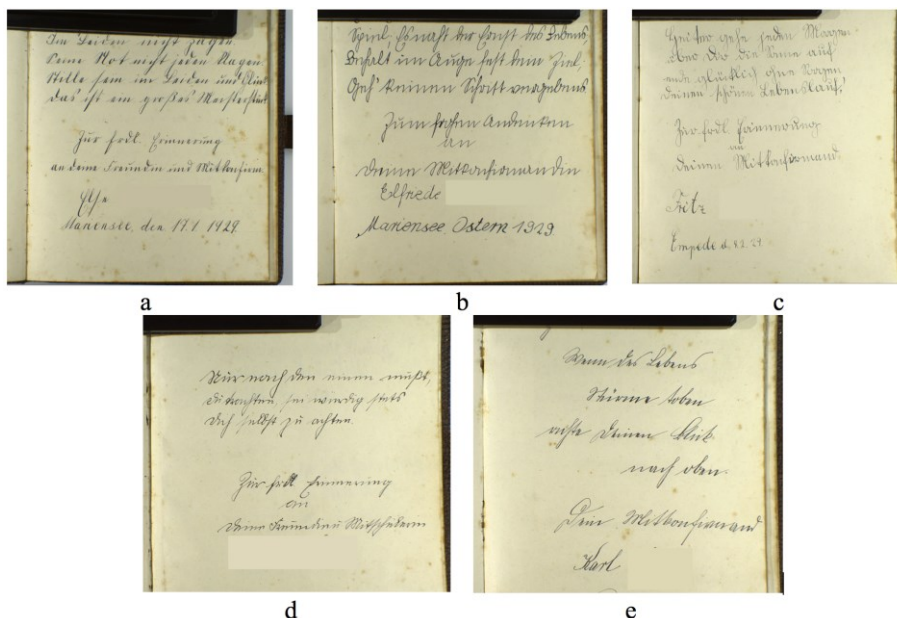 Im Leiden nicht zagen
Seine Not nicht jedem klagen
Stille sein im Leiden und Glück
Das ist ein großes Meisterstück
Zur frdl. Erinnerung
an deine Freundin und Mitkonfirm.
Else
Mariensee, den 17.1. 1929.
a
Spiel, Es naht der Ernst des Lebens,
Behalt im Auge fest dein Ziel,
Geh' keinen Schritt vergebens
Zum frohen Andenken
an
Deine Mitkonfirmandin
Elfriede
Mariensee Ostern 1929
b
Heiter gehe jeden Morgen
dir die Sonne auf
ende glücklich ohne Sorgen
deinen schönen Lebenslauf.
Zur frdl. Erinnerung
an
deinen Mitkonfirmand.
Fritz
Empede d. 8.2. 29.
c
Nur nach den einen mußt,
du trachten, sei würdig stets
Dich selbst zu achten.
Zur frdl Erinnerung
an
Deine Mitschülerin
d
Wenn des Lebens
Stürme toben
richte Deinen Blick
nach oben.
Dein Mitkonfirmand
Karl
e